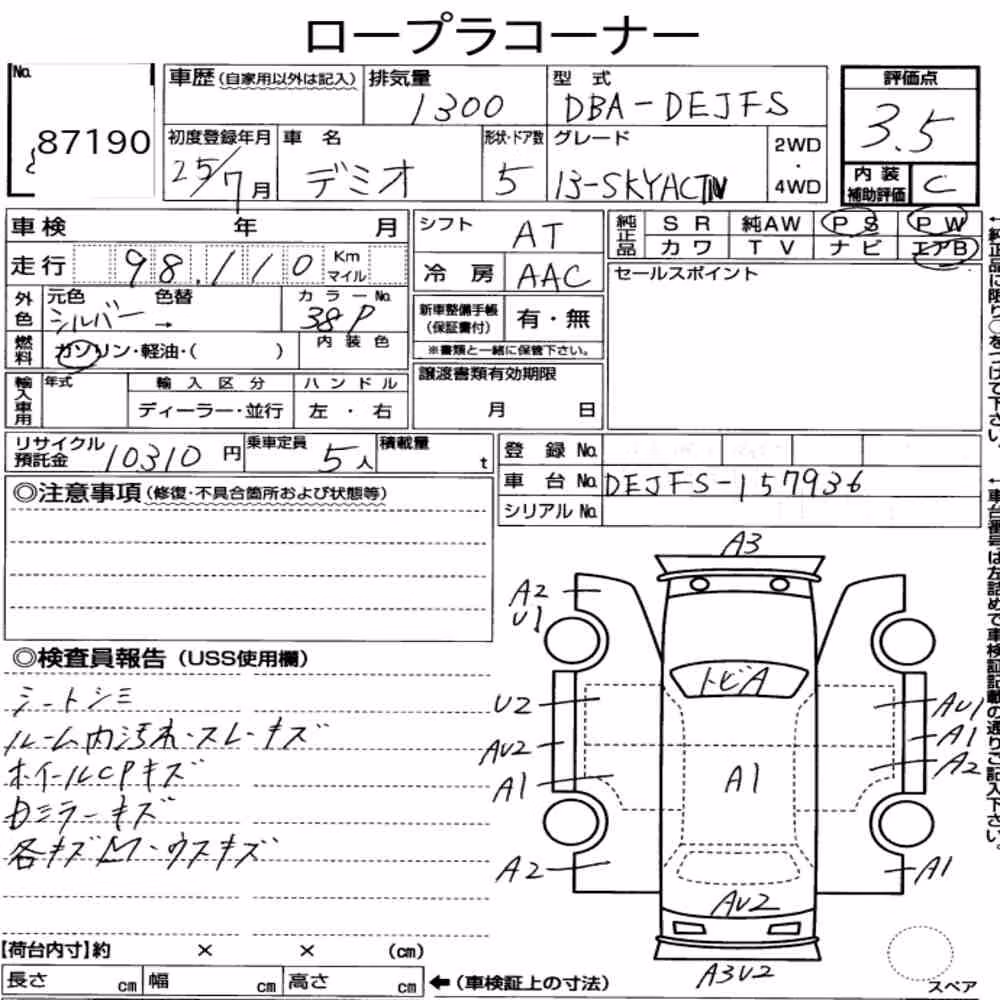 ロープラコーナー
No. 87190
車歴(自家用以外は記入) 排気量 1300 型式 DBA-DEJFS
評価点 3.5
初度登録年月 25/7月 車名 デミオ 形状・ドア数 5 グレード 13-SKYACTIV 2WD・4WD
内装補助評価 C
車検 年 月
シフト AT
純正品 SR 純AW PS PW
カワ TV ナビ エアB
走行 98,110 Km マイル
冷房 AAC
セールスポイント
外色 元色 シルバー → 色替 カラーNo. 38P
新車整備手帳(保証書付) 有・無
※書類と一緒に保管下さい。
燃料 ガソリン・軽油・( ) 内装色
輸入車用 年式 輸入区分 ハンドル
ディーラー・並行 左・右
譲渡書類有効期限
月 日
リサイクル預託金 10310円 乗車定員 5人 積載量 t
登録No.
車台No. DEJFS-157936
シリアルNo.
◎注意事項(修復・不具合箇所および状態等)
◎検査員報告(USS使用欄)
シートシミ
ルーム内汚れ・スレ・キズ
ホイールCPキズ
Dミラーキズ
各キズM・ウスキズ
A3
A2
U1
トビA
U2
AU2
A1
A1
AU1
A1
A2
A2
A1
AU2
A3U2
スペア
【荷台内寸】約 × × (cm)
長さ cm 幅 cm 高さ cm ←(車検証上の寸法)
←純正品に限り○をつけて下さい。
←車台番号は左詰めで車検証記載の通りご記入下さい。